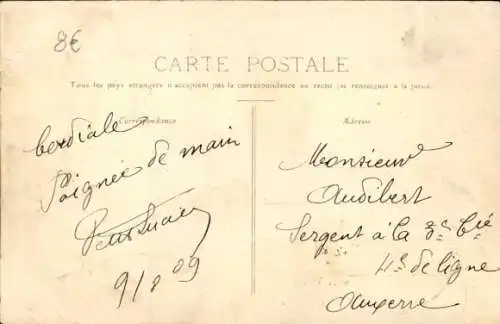 8€
CARTE POSTALE
Tous les pays étrangers n'acceptent pas la correspondance au recto (se renseigner à la poste)
Correspondance
Adresse
Cordiale
Poignée de main
9/8 09
Monsieur
Audibert
Sergent à la 3e Cie
4e de ligne
Auxerre